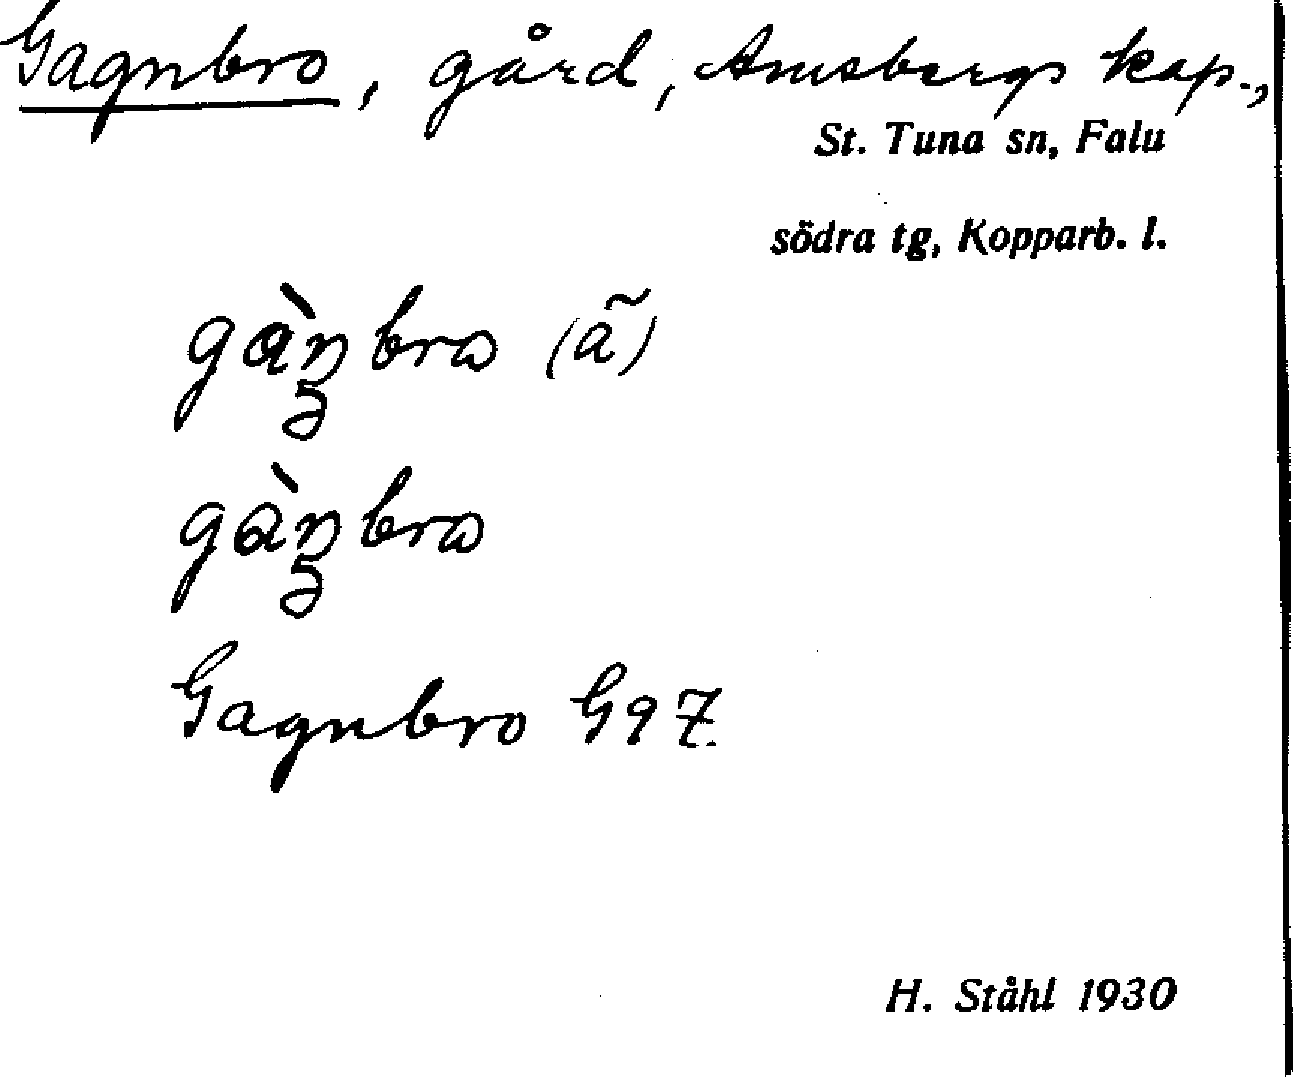 Gagnbro, gård, Amsbergs kap.,
St. Tuna sn, Falu
södra tg, Kopparb. l.
gàŋbra (ã)
gàŋbra
Gagnbro G97.
H. Ståhl 1930